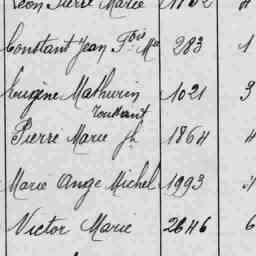 Léon Pierre Marie 1802
Constant Jean Fois Mie 283 1
Eugène Mathurin 1021 3
Toussaint
Pierre Marie Jh 1864 4
Marie Ange Michel 1993
Victor Marie 2646 6